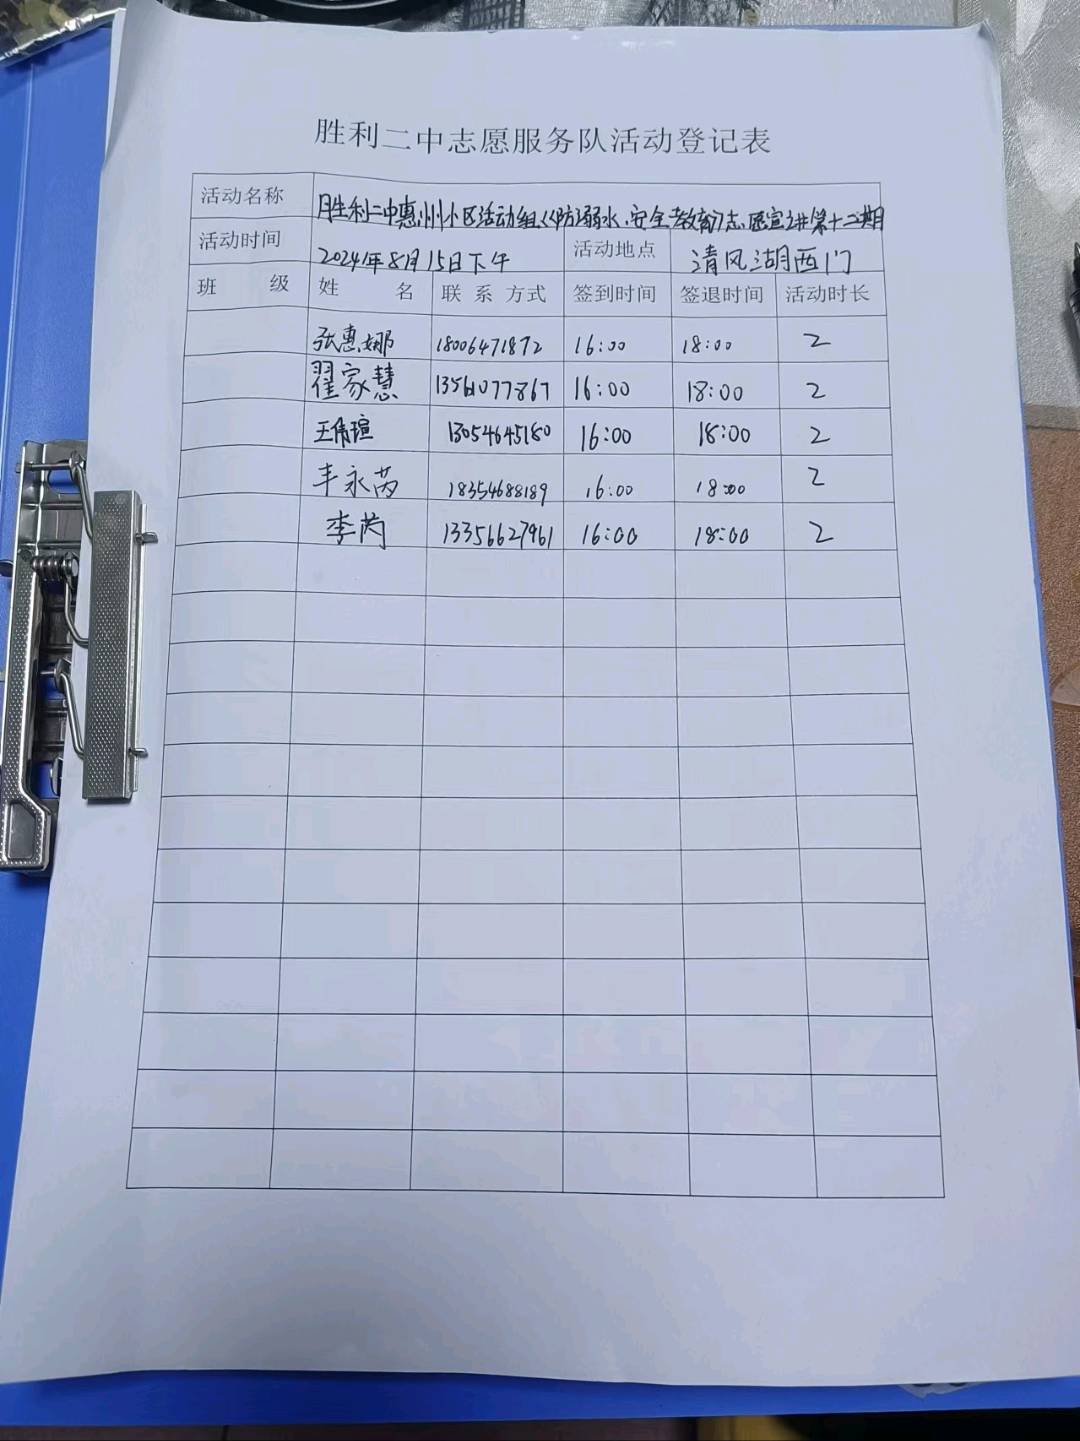 胜利二中志愿服务队活动登记表
活动名称 胜利二中惠州小区活动组《防溺水·安全教育》志愿宣讲第十二期
活动时间 2024年8月15日下午 活动地点 清风湖西门
班 级 姓 名 联 系 方式 签到时间 签退时间 活动时长
张惠娜 18006471872 16:00 18:00 2
翟家慧 13561077867 16:00 18:00 2
王伟瑄 13054645180 16:00 18:00 2
丰永芮 18354688189 16:00 18:00 2
李芮 13356627961 16:00 18:00 2